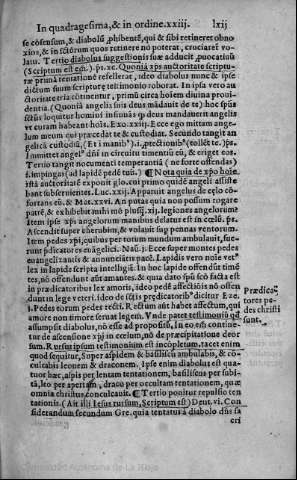 In quadragesima, & in ordine.xxiij. lxij
se cõsensum, & diabolũ ꝓhibentẽ, qui & sibi retineret obno
xios, & in sctõrum quos retinere nõ poterat, cruciaret vo
latu. Tertio diabolus suggestiõis suæ adducit
(Scriptum est em.) ps.xc. Quoniã xp̃s auctoritate scriptu-
ræ prima tentatiõe refellerat, ideo diabolus nunc & ipse
dictum suum scripturæ testimonio roborat. In ipsa vero au
ctoritate tria cõtinentur, primũ circa hoĩem diuina proui-
dentia. (Quoniã angelis suis deus mãdauit de te) hoc ipsũs
sctũs loquitur homini insinuãs q̃ deus mandauerit angelis
vt curam habeant hoĩs. Exo.xxiij. Ecce ego mittam ange-
lum meum qui præcedat te & custodiat. Secundo tangit an
gelicã custodiã, (Et ĩ manib⁹).i.ꝓtectionib⁹(tollẽt te.)ps.
Immittet angel⁹ dñi in circuitu timentiũ eũ, & eripiet eos.
Tertio tangit nocumenti temperantiã (ne forte offendas)
i.impingas (ad lapidẽ pedẽ tuũ.) ¶ Nota quia de xp̃o hoĩe
ista auctoritatẽ exponit glo. cui primo quidẽ angeli assiste
bant subseruientes. Luc.xxij. Apparuit angelus de cęlo cõ-
fortans eũ, & Mat.xxvi. An putas quia non possum rogare
patrẽ, & exhibebit mihi mõ plusq̃.xij. legiones angelorum?
Item ipse xp̃s angelorum manibus delatus est in cęlũ. ps.
Ascendit super cherubim, & volauit sup pennas ventorum.
Item pedes xp̃i, quibus per totum mundum ambulauit, fue-
runt p̃dicatores euãgelici. Nau.j. Ecce super montes pedes
euangelizantis & annuntiatis pacẽ. Lapidis vero noĩe vet⁹
lex in lapide scripta intelligit̃. In hac lapide offendũt timẽ
tes, nõ offendunt aũt amantes. & quia dato spũ sctõ facta est
in p̃dicatoribus lex amoris, ideo pedẽ affectiõis nõ offen
dunt in lege veteri. ideo de sctis prædicatorib⁹ dicitur Eze.
i. Pedes eorum pedes recti. Rectum aũt habet affectum, qui
amore non timore seruat legem. Vnde patet testimoniũ qd̃
assumpsit diabolus, nõ esse ad propositũ, Iã eo em̃ contine-
tur de ascensione xp̃i in cęlum, nõ de præcipitatione deor
sum. Rursus ipsum testimonium est incõpletum. tacet enim
quod sequitur, Super aspidem & basiliscũ ambulabis, & cõ-
culcabis leonem & draconem. Ipse enim diabolus est qua-
tuor hæc, aspis per lentam tentationem, basiliscus per subi-
tã, leo per apertam, draco per occultam tentationem, quæ
omnia christus conculcauit. ¶ Tertio ponitur repulsio ten
tationis, (Ait illi Iesus rursum, Scriptum est) Deut.vi. Con
siderandum secundum Gre. quia tentatus à diabolo dñs sa
cri
Prædica-
tores pe-
des christi
sunt.